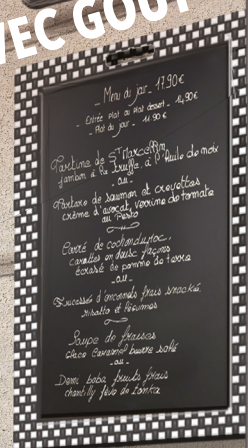 VEC GOÛT
- Menu du jour - 17.90€
- Entrée plat ou plat dessert - 14,90€
- Plat du jour - 11.90€
Tartine de St Marcellin,
jambon à la truffe, à l'huile de noix
- ou -
Tartare de saumon et crevettes
crème d'avocat, verrine de tomate
au Pesto
Carré de cochonduroc,
carottes en deux façons
écrasé de pomme de terre
- ou -
Fricassée d'encornets frais snackés,
risotto et légumes
Soupe de fraises
glace caramel beurre salé
- ou -
Demi baba fruits frais
chantilly fève de tonka